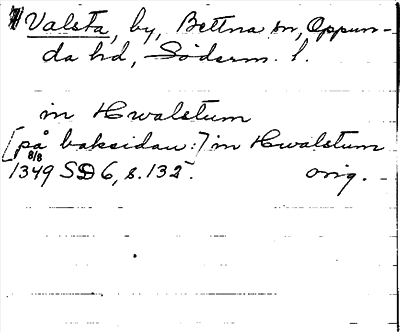 Valsta, by, Bettna sn, Oppun-
da hd, Söderm. l.
in Hwalstum
[på baksidan:] in Hwalstum
8/8
1349 SD 6, s. 132. orig.